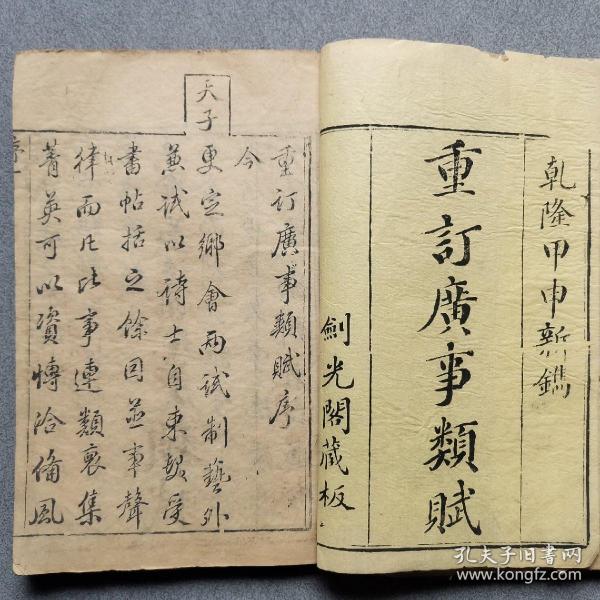 乾隆甲申新鐫
重訂廣事類賦
劍光閣藏板
重訂廣事類賦序
今
天子
更定鄉會兩試制藝外
兼試以詩士自束髮受
書帖括之餘因並事聲
律而凡比事連類裒集
菁英可以資博洽備風
序一
孔夫子旧书网
www.kongfz.com